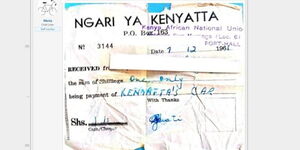 NGARI YA KENYATTA
Kenya African National Unio
P.O. Box 163
FORT-HALL
No 3144
Date 7 12 1961
RECEIVED from
the sum of Shillings One Only
being payment of KENYATTA'S CAR
With Thanks
Shs.
Cash/Cheque